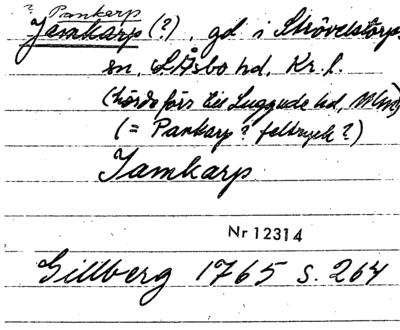 ? Pankarp
Jamkarp (?), gd i Strövelstorps
sn, S. Åsbo hd, Kr. l.
(hörde förr till Luggude hd, Mlm)
(= Pankarp? feltryck?)
Jamkarp
Nr 12314
Gillberg 1765 s. 264